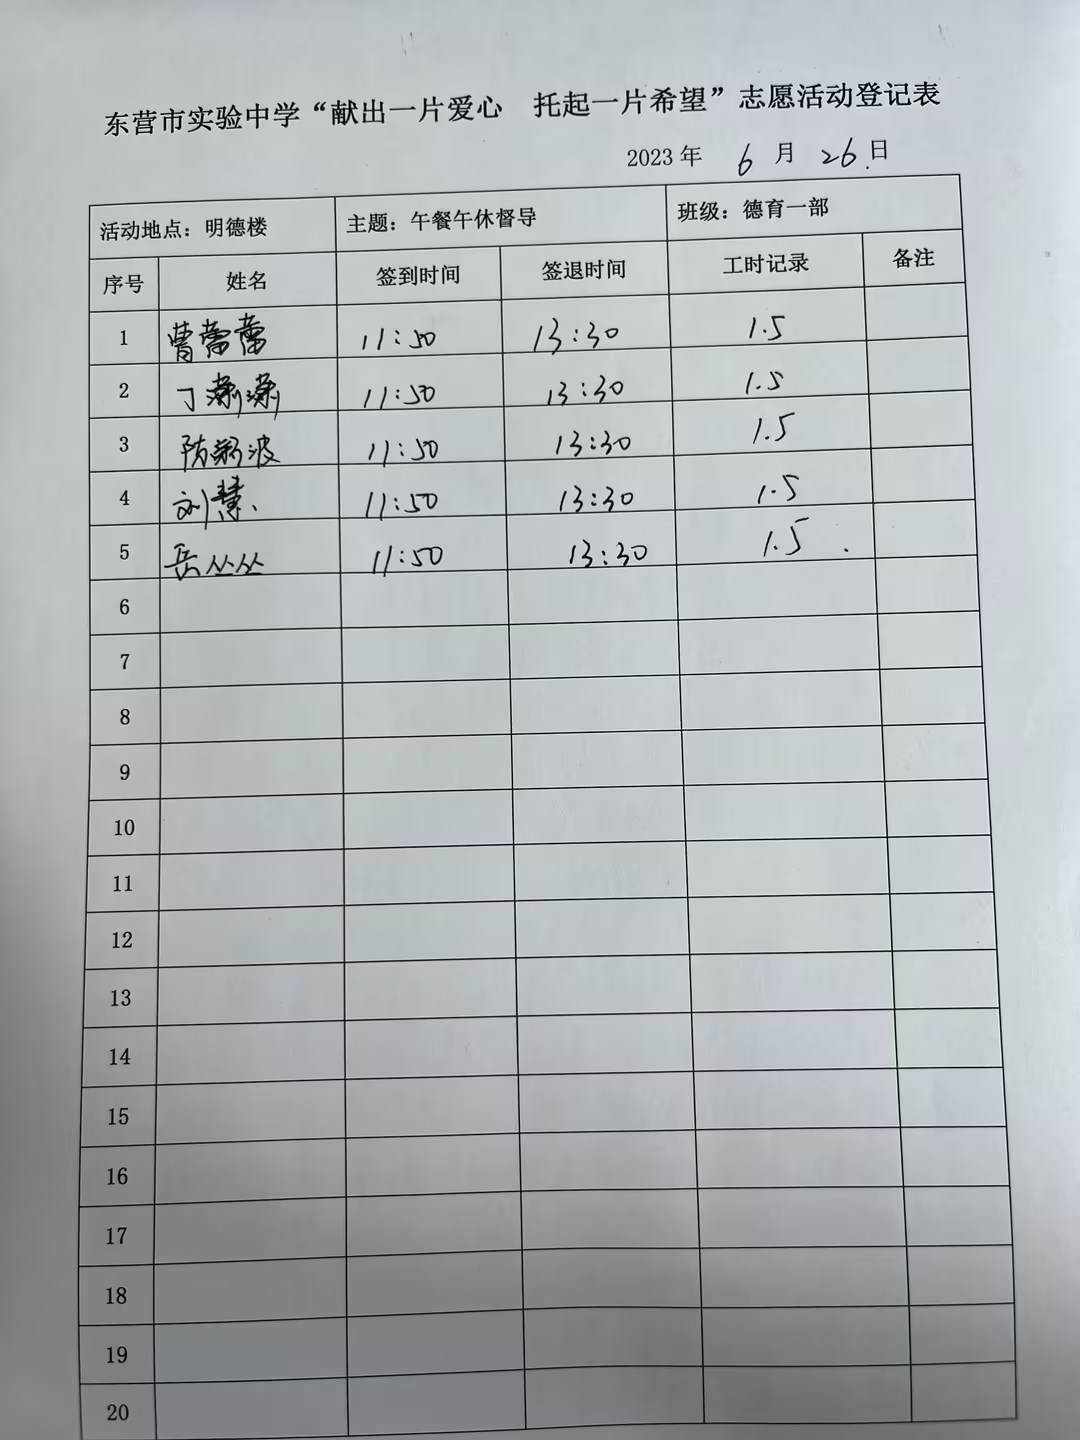 东营市实验中学“献出一片爱心 托起一片希望”志愿活动登记表
2023 年 6 月 26 日
活动地点：明德楼 主题：午餐午休督导 班级：德育一部
序号 姓名 签到时间 签退时间 工时记录 备注
1 曹蕾蕾 11:50 13:30 1.5
2 丁潇潇 11:50 13:30 1.5
3 陈 波 11:50 13:30 1.5
4 刘慧 11:50 13:30 1.5
5 岳丛丛 11:50 13:30 1.5
6
7
8
9
10
11
12
13
14
15
16
17
18
19
20